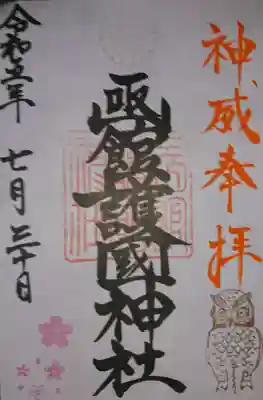 神威奉拝
函館護國神社
令和五年七月三十日